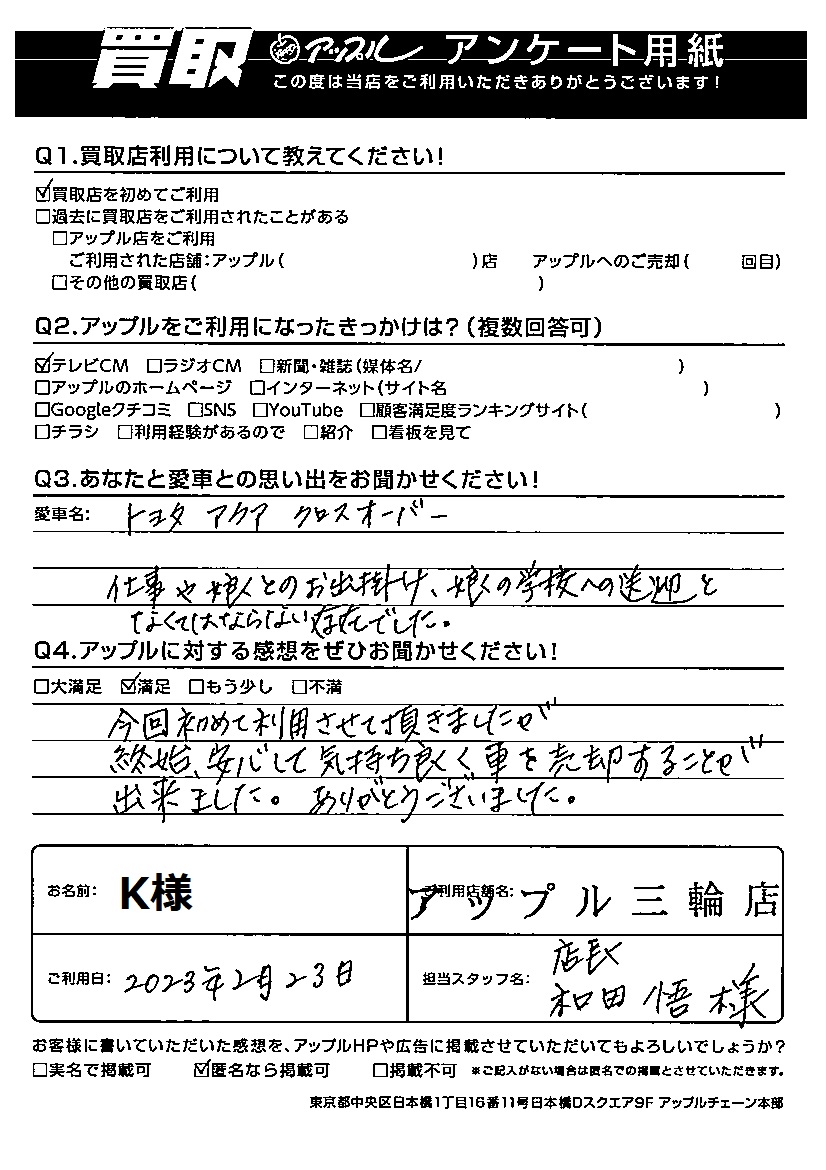 買取 アップル アンケート用紙
この度は当店をご利用いただきありがとうございます!
Q1.買取店利用について教えてください!
☑買取店を初めてご利用
□過去に買取店をご利用されたことがある
□アップル店をご利用
ご利用された店舗:アップル( )店 アップルへのご売却( 回目)
□その他の買取店( )
Q2.アップルをご利用になったきっかけは?(複数回答可)
☑テレビCM □ラジオCM □新聞・雑誌(媒体名/ )
□アップルのホームページ □インターネット(サイト名 )
□Googleクチコミ □SNS □YouTube □顧客満足度ランキングサイト( )
□チラシ □利用経験があるので □紹介 □看板を見て
Q3.あなたと愛車との思い出をお聞かせください!
愛車名: トヨタ アクア クロスオーバー
仕事や娘とのお出掛け、娘の学校への送迎と
なくてはならない存在でした。
Q4.アップルに対する感想をぜひお聞かせください!
□大満足 ☑満足 □もう少し □不満
今回初めて利用させて頂きましたが
終始、安心して気持ち良く車を売却することが
出来ました。ありがとうございました。
お名前: K様 ご利用店舗名: アップル三輪店
ご利用日: 2023年2月23日 担当スタッフ名: 店長
和田 悟 様
お客様に書いていただいた感想を、アップルHPや広告に掲載させていただいてもよろしいでしょうか?
□実名で掲載可 ☑匿名なら掲載可 □掲載不可 ※ご記入がない場合は匿名での掲載とさせていただきます。
東京都中央区日本橋1丁目16番11号日本橋Dスクエア9F アップルチェーン本部